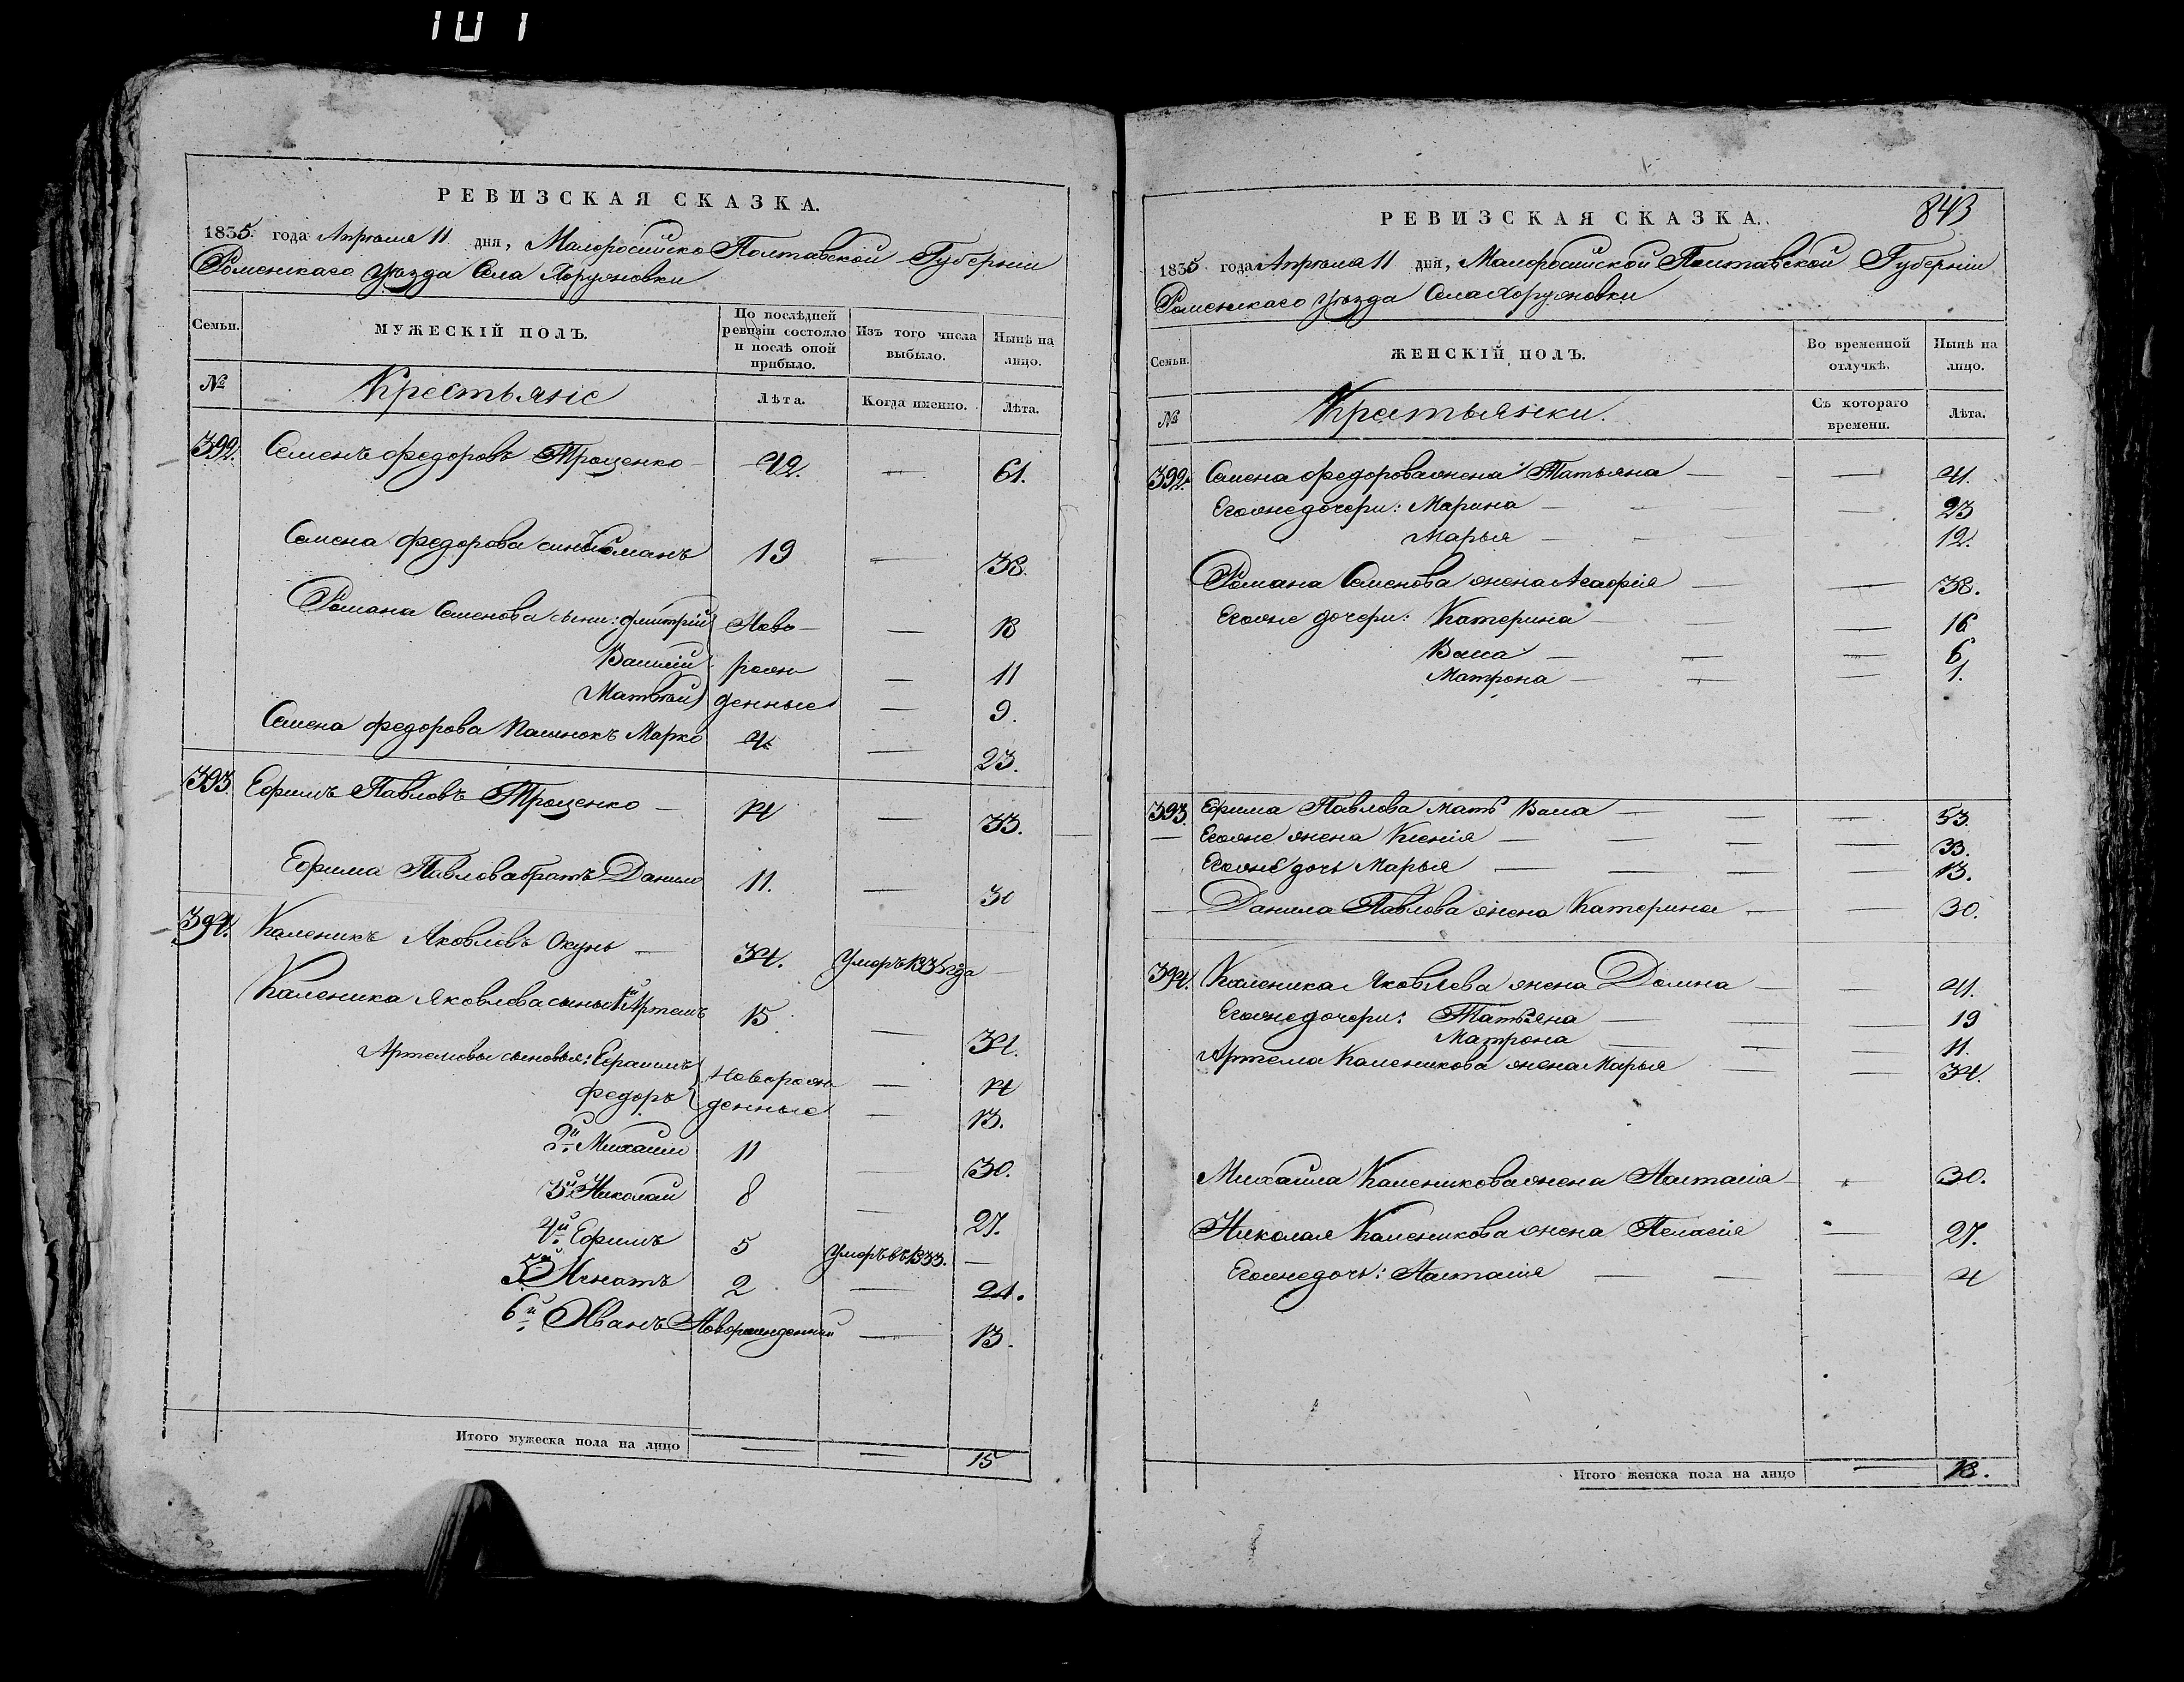 101
РЕВИЗСКАЯ СКАЗКА.
1835. года Апрѣля 11 дня, Малоросійско Полтавской Губерніи
Роменскаго Уѣзда Села Хоружовки
Семьи. МУЖЕСКІЙ ПОЛЪ. По послѣдней ревизіи состояло и послѣ оной прибыло. Изъ того числа выбыло. Нынѣ на лицо.
№ Крестьяне Лѣта. Когда именно. Лѣта.
392. Семенъ Федоровъ Троценко 42. — 61.
Семена Федорова сынъ Романъ 19 — 38.
Романа Семенова сыни: Дмитрій Ново — 18
Василій рожн — 11
Матвѣй денные — 9.
Семена Федорова Пасынокъ Марко 4 — 23.
393 Ефимъ Павловъ Троценко — 14 — 33.
Ефима Павлова братъ Данило 11. — 30
394. Каленикъ Яковлевъ Окунь — 34. Умеръ 1835 года —
Каленика Яковлева сыны 1й Артемъ 15. — 34.
Артемовы сыновья: Герасимъ Новорож — 14
Федоръ денные — 13.
2й Михаилъ 11 — 30.
3й Николай 8 — 27.
4й Ефимъ 5 Умеръ въ 1833. —
5й Игнатъ 2 — 21.
6й Иванъ Новорожденный — 13.
Итого мужеска пола на лицо — — 15
843
РЕВИЗСКАЯ СКАЗКА.
1835 года Апрѣля 11 дня, Малоросійской Полтавской Губерніи
Роменскаго Уѣзда Села Хоружовки
Семьи. ЖЕНСКІЙ ПОЛЪ. Во временной отлучкѣ. Нынѣ на лицо.
№ Крестьянки. Съ котораго времени. Лѣта.
392. Семена Федорова жена Татьяна — — 41.
Егоже дочери: Марина — — 23
Марья — — 12.
Романа Семенова жена Агафія — — 38.
Егоже дочери: Катерина — — 16
Васа — — — 6
Матрона — — — 1.
393. Ефима Павлова мать Васа — — — 53.
— Егоже жена Ксенія — — — — 33.
Егоже дочь Марья — — — — 13.
— Данила Павлова жена Катерина — — 30.
394. Каленика Яковлева жена Домна — — 41.
Егоже дочери: Татьяна — — — 19
Матрона — — — 11.
Артема Каленикова жена Марья — — 34.
Михаила Каленикова жена Настасія — 30.
Николая Каленикова жена Пелагія — 27.
Егоже дочь: Настасія — — — 4
Итого женска пола на лицо — 18.